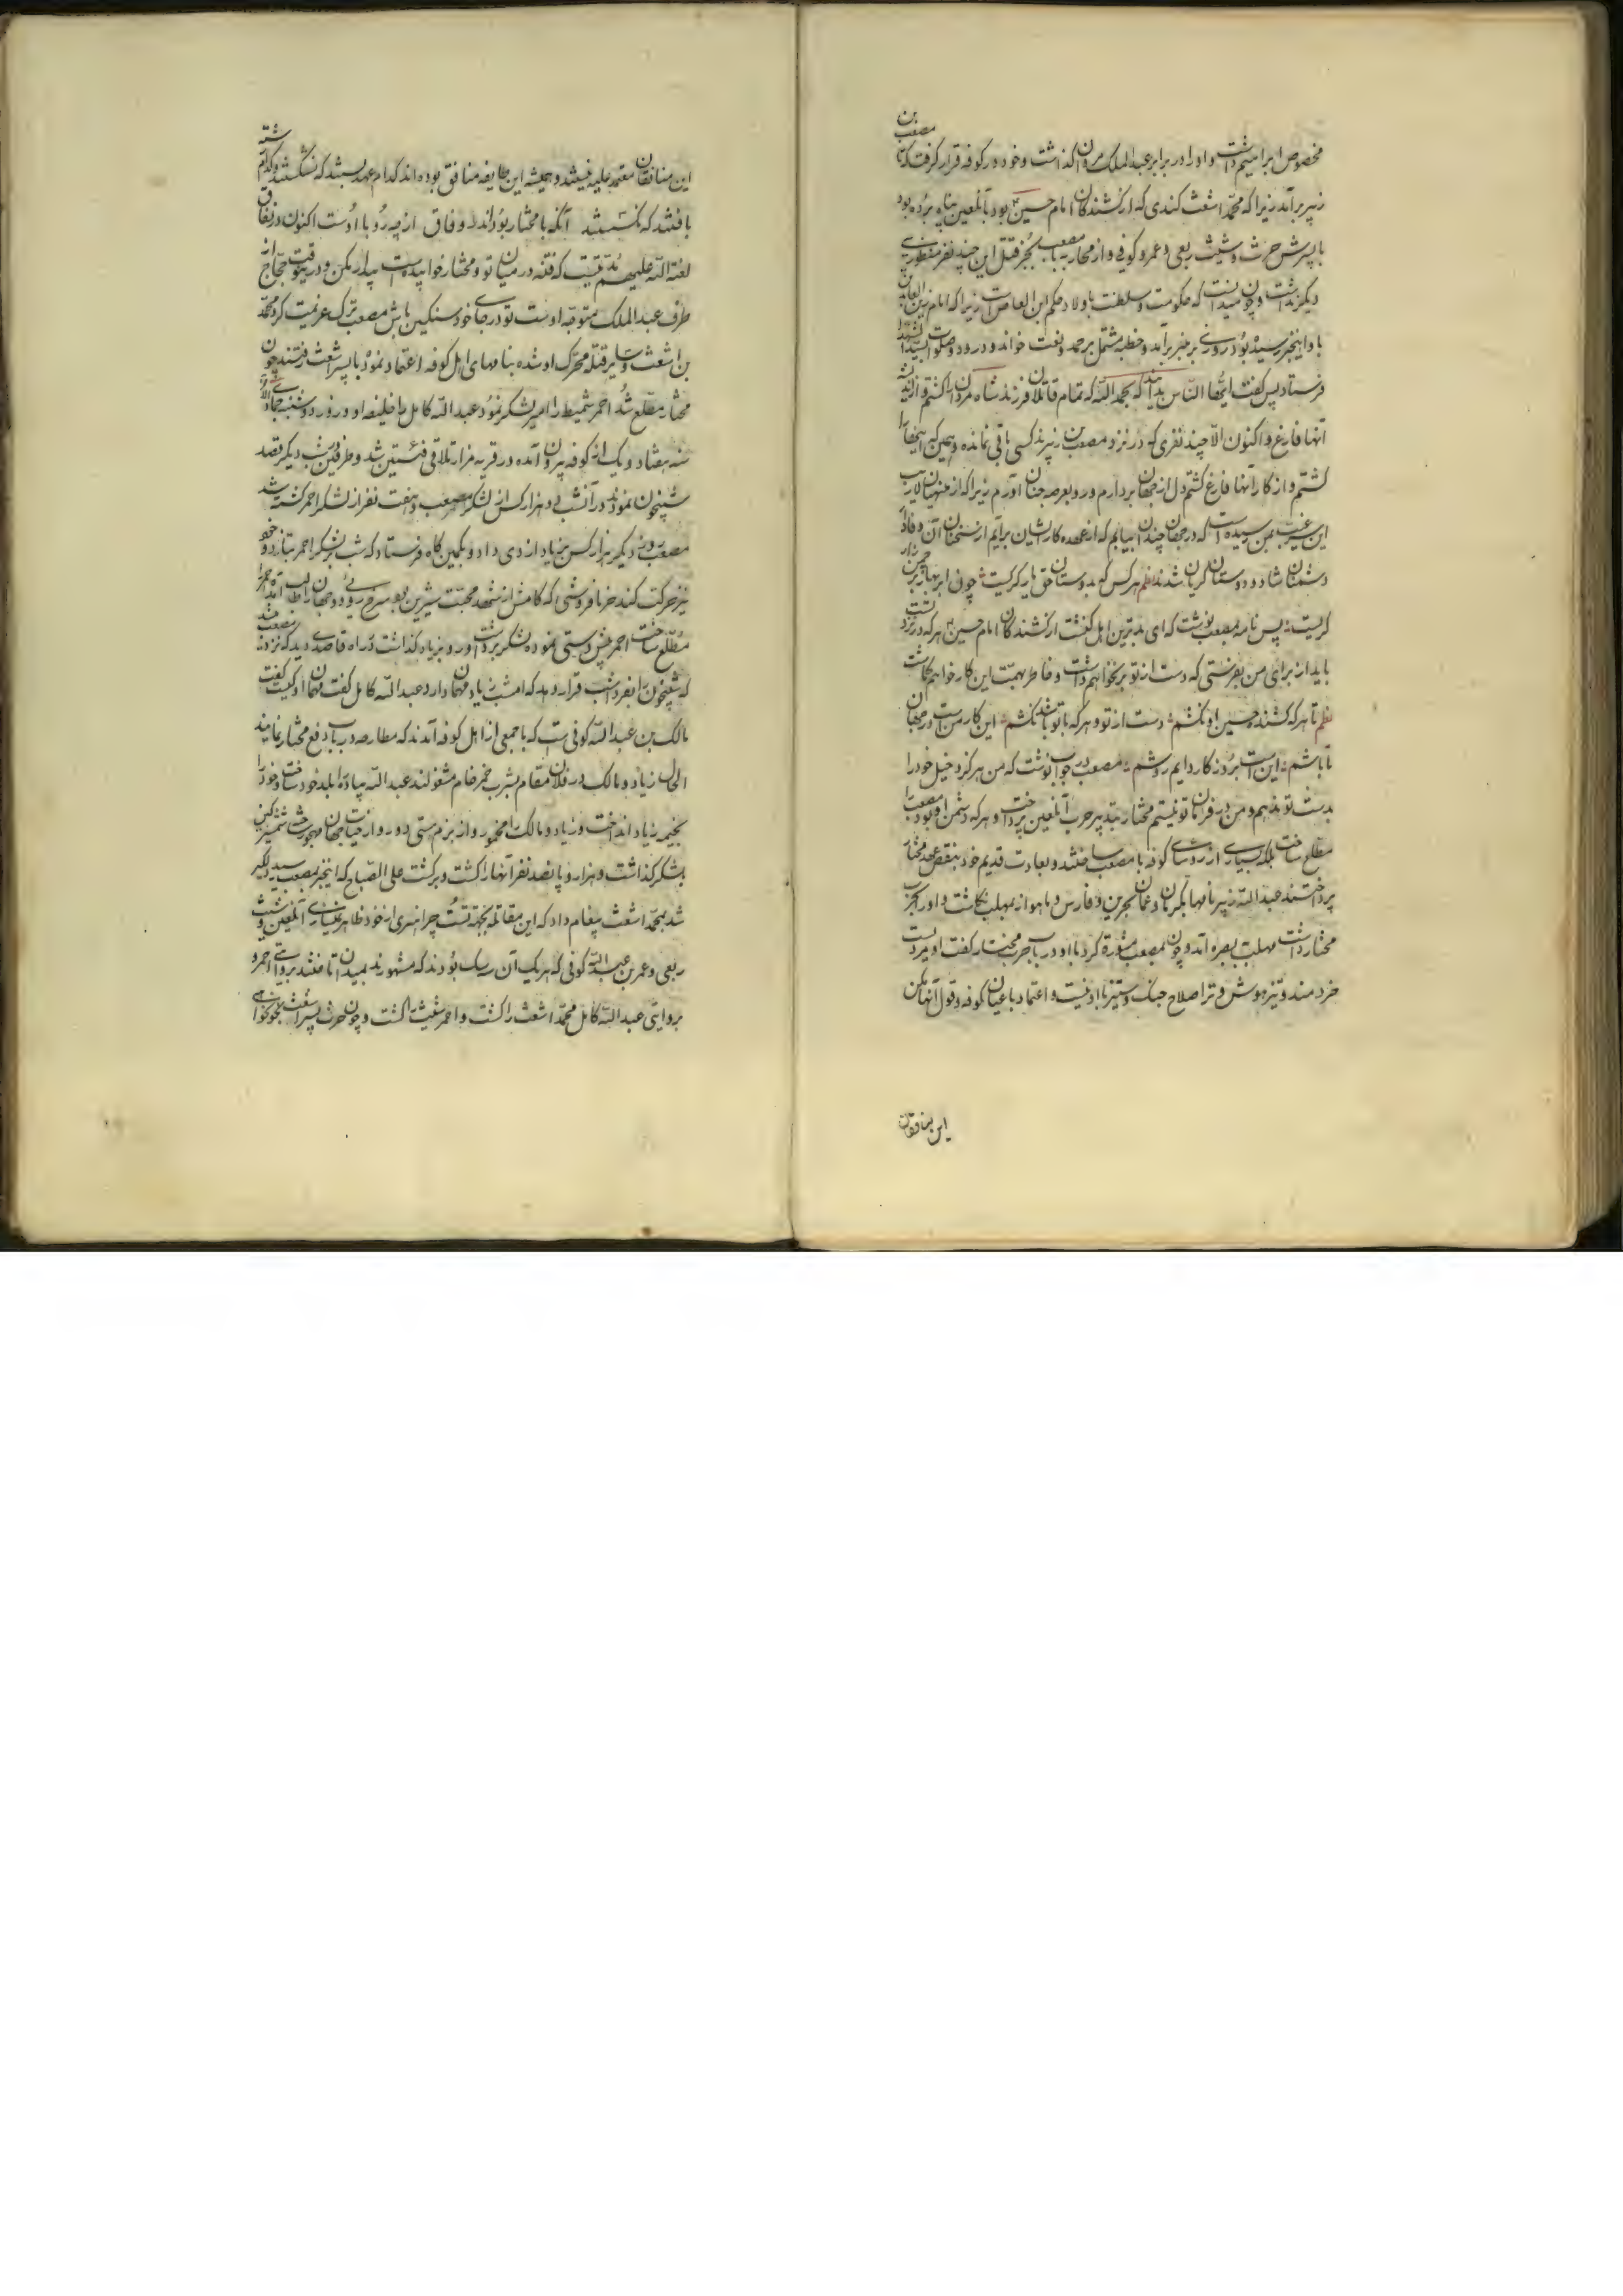 مخصوص ابراهیم داشت و او را در برابر عبدالملک مروان گذاشت و خود در کوفه قرار گرفت که تا مصعب بن
زبیر برآید زیرا که محمد اشعث کندی که از کشندگان امام حسین بود بآنلعین پناه برده بود
با پسرش حرث و شیث ربعی و عمرو کوفی و از محاربه مصعب بجز قتل این چند نفر منظوری
دیگر نداشت و چون میدانست که حکومت و سلطنت باولاد حکم ابن العاص است زیرا که امام زین العابدین
باو اینخبر رسیده بود روزی بر منبر برآمد و خطبه مشتمل بر حمد و نعت خواند و درود و صلوات سیدالشهدا
فرستاد پس گفت ایها الناس بدانید که بحمدالله که تمام قاتلان فرزند شاه مردان را کشتم و از اندیشه
آنها فارغم و اکنون الا چند نفری که در نزد مصعب بن زبیرند کسی باقی نمانده و همین که اینها را
کشتم و از کار آنها فارغ گشتم دل از جهان بردارم و رو بعرصه جنان آورم زیرا که از منهیان لاریب
این غیب بمن رسیده است که در جهان چندان بیایم که از عهده کار ایشان برآیم از سخنان آن وفادار
دشمنان شاد و دوستان گریان شدند نظم هر کس که بدوستان حق یار گریست چون ابر بهار زار
گریست پس نامه بمصعب نوشت که ای بدترین اهل از کشندگان امام حسین هر که در نزد تست
باید از برای من بفرستی که دست از تو برنخواهم داشت و خاطر بهمت این کار خواهم گماشت
نظم تا هر که کشنده حسین او نکشم دست از تو و هر که با تو باشد نکشم این کار منست در جهان
تا باشم این است بروزگار دایم روشم مصعب در جواب نوشت که من هرگز دخیل خود را
بدست تو ندهم و من در فرمان تو نیستم مختار بتدبیر حرب آنلعین پرداخت و هر که دشمن او بود مصعب را
مطلع ساخت بلکه بسیاری از رؤسای کوفه با مصعب ساختند و بعادت قدیم خود بنقض عهد مختار
پرداختند عبدالله زبیر نامها بکرمان و عمان و بحرین و فارس و باهواز بمهلب نگاشت و او را بحرب
مختار داشت مهلب ببصره آمد و چون مصعب مشورة کرد با او در باب حرب مختار گفت او مردیست
خردمند و تیزهوش و ترا صلاح جنگ و ستیز با او نیست و اعتماد باعیان کوفه و قول آنها مکن
این منافقان
این منافقان معتمد علیه نیستند و همیشه این طایفه منافق بوده‌اند کدام عهد بستند که نشکستند و کدام رشته
بافتند که نگسستند آنگه با مختار بوده‌اند در وفاق از چه رو با اوست اکنون در نفاق
لعنة الله علیهم بد نیت که فتنه در میان تو و مختار خوابیده است بیدار مکن و درینوقت حجاج از
طرف عبدالملک متوجه اوست تو در جای خود سنگین باش مصعب ترک عزیمت کرد محمد
بن اشعث و سایر قتله محرک او شده بنامهای اهل کوفه اعتماد نموده با پسر اشعث رفتند چون
مختار مطلع شد احمر شمیط را امیر لشکر نمود و عبدالله کامل را خلیفه او و روز دوشنبه جماد
سنه هفتاد و یک از کوفه بیرون آمده در قریه مزار تلاقی فئتین شد و طرفین شب دیگر قصد
شبیخون نمودند در آنشب دو هزار کس از لشکر مصعب و هفت نفر از لشکر احمر کشته شد
مصعب روز دیگر هزار کس بزیاد ازدی داد و بکمین گاه فرستاد که شب بر لشکر احمر بتازد و خود
نیز حرکت کند خرما فروشی که کامش از شهد محبت شیرین بود
مطلع ساخت احمر پیش دستی نموده لشکر برداشت و رو بزیاد گذاشت در راه قاصدی دید که نزد مصعب
که شبیخون را بفردا شب قرار دهد که امشب زیاد مهمان دارد عبدالله کامل گفت مهمان او کیست گفت
مالک بن عبدالله کوفی است که با جمعی از اهل کوفه آمدند که در باب دفع مختار نمایند
الحال زیاد و مالک در فلان مقام بشرب خمر خام مشغولند عبدالله پیاده را بلد خود ساخت و خود را
بخیمه زیاد انداخت و زیاد و مالک را مخمور و از بزم مستی دور و از حیات جهان مهجور ساخت شمشیر کین
بلشکر گذاشت و هزار و پانصد نفر آنها را کشت و برگشت علی الصباح که اینخبر بمصعب رسید دلگیر
شد بمحمد اشعث پیغام داد که این مقاتله بجهة تست چرا هنری از خود ظاهر نمیسازی آنلعین و شیث
ربعی و عمر بن عبدالله کوفی که هر یک آن بودند که مشهورند بمیدان تاختند بروایتی احمر و
بروایتی عبدالله کامل محمد اشعث را کشت و احمر شیث را کشت و چون حرث پسر اشعث بخونخواهی